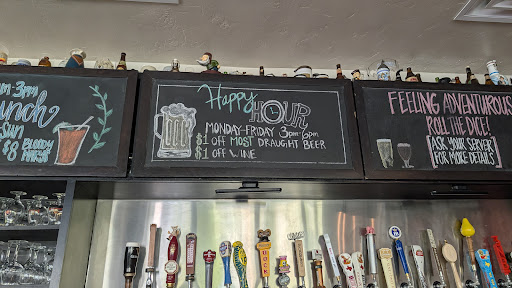 3pm
unch
Sun
$8 BLOODY
Happy HOUR
MONDAY-FRIDAY 3pm-6pm
$1 OFF MOST DRAUGHT BEER
$1 OFF WINE
FEELING ADVENTUROUS
ROLL THE DICE!
ASK YOUR SERVER
FOR MORE DETAILS